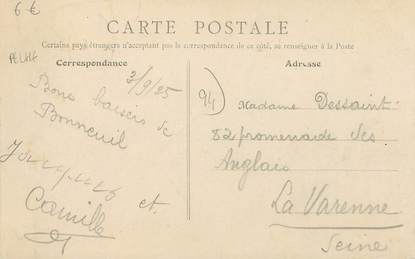 6 €
CARTE POSTALE
Certains pays étrangers n'acceptant pas la correspondance de ce côté, se renseigner à la Poste
PECHE
Correspondance
3/9/25
Bons baisers de
Bonneuil
Jacques
et
Camille
Adresse
94
Madame Dessaint
82 promenade des
Anglais
La Varenne
Seine